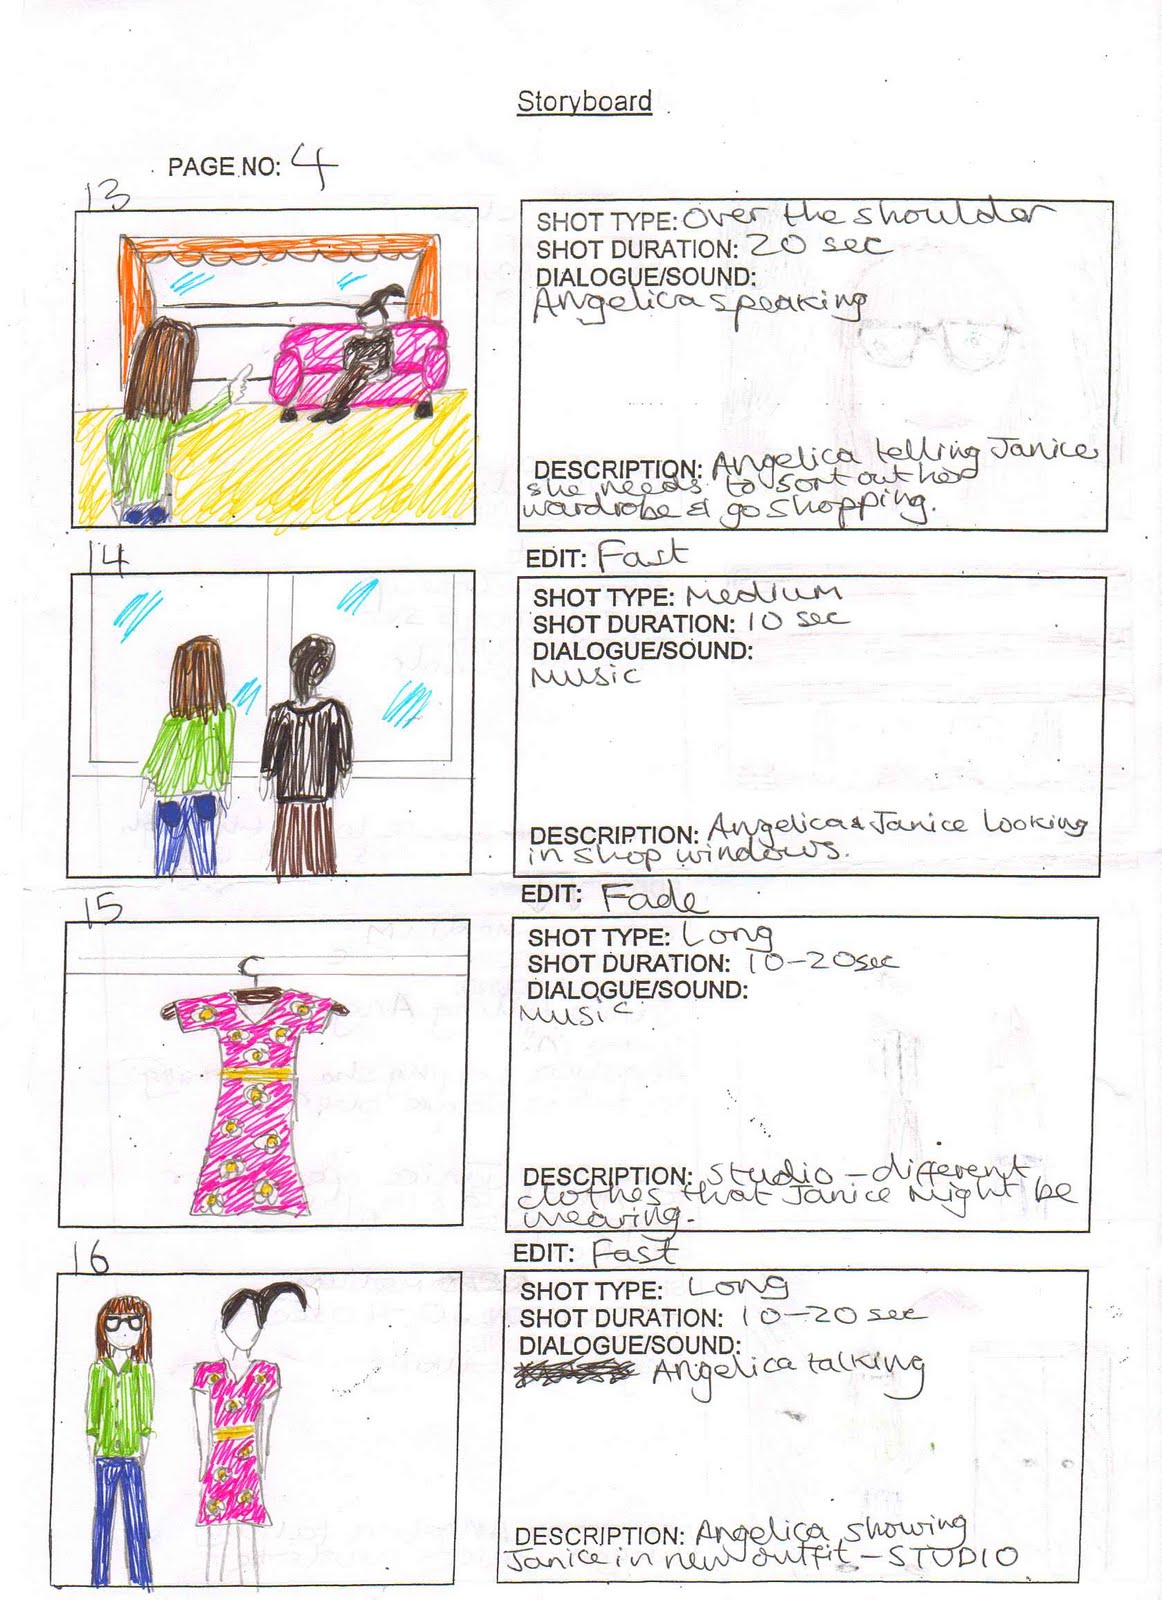 Storyboard
PAGE NO: 4
13
SHOT TYPE: Over the shoulder
SHOT DURATION: 20 sec
DIALOGUE/SOUND:
Angelica speaking
DESCRIPTION: Angelica telling Janice
she needs to sort out her
wardrobe & go shopping.
EDIT: Fast
14
SHOT TYPE: Medium
SHOT DURATION: 10 sec
DIALOGUE/SOUND:
Music
DESCRIPTION: Angelica & Janice looking
in shop windows.
EDIT: Fade
15
SHOT TYPE: Long
SHOT DURATION: 10-20sec
DIALOGUE/SOUND:
Music
DESCRIPTION: Studio - different
clothes that Janice might be
wearing.
EDIT: Fast
16
SHOT TYPE: Long
SHOT DURATION: 10-20 sec
DIALOGUE/SOUND:
Angelica talking
DESCRIPTION: Angelica showing
Janice in new outfit - STUDIO